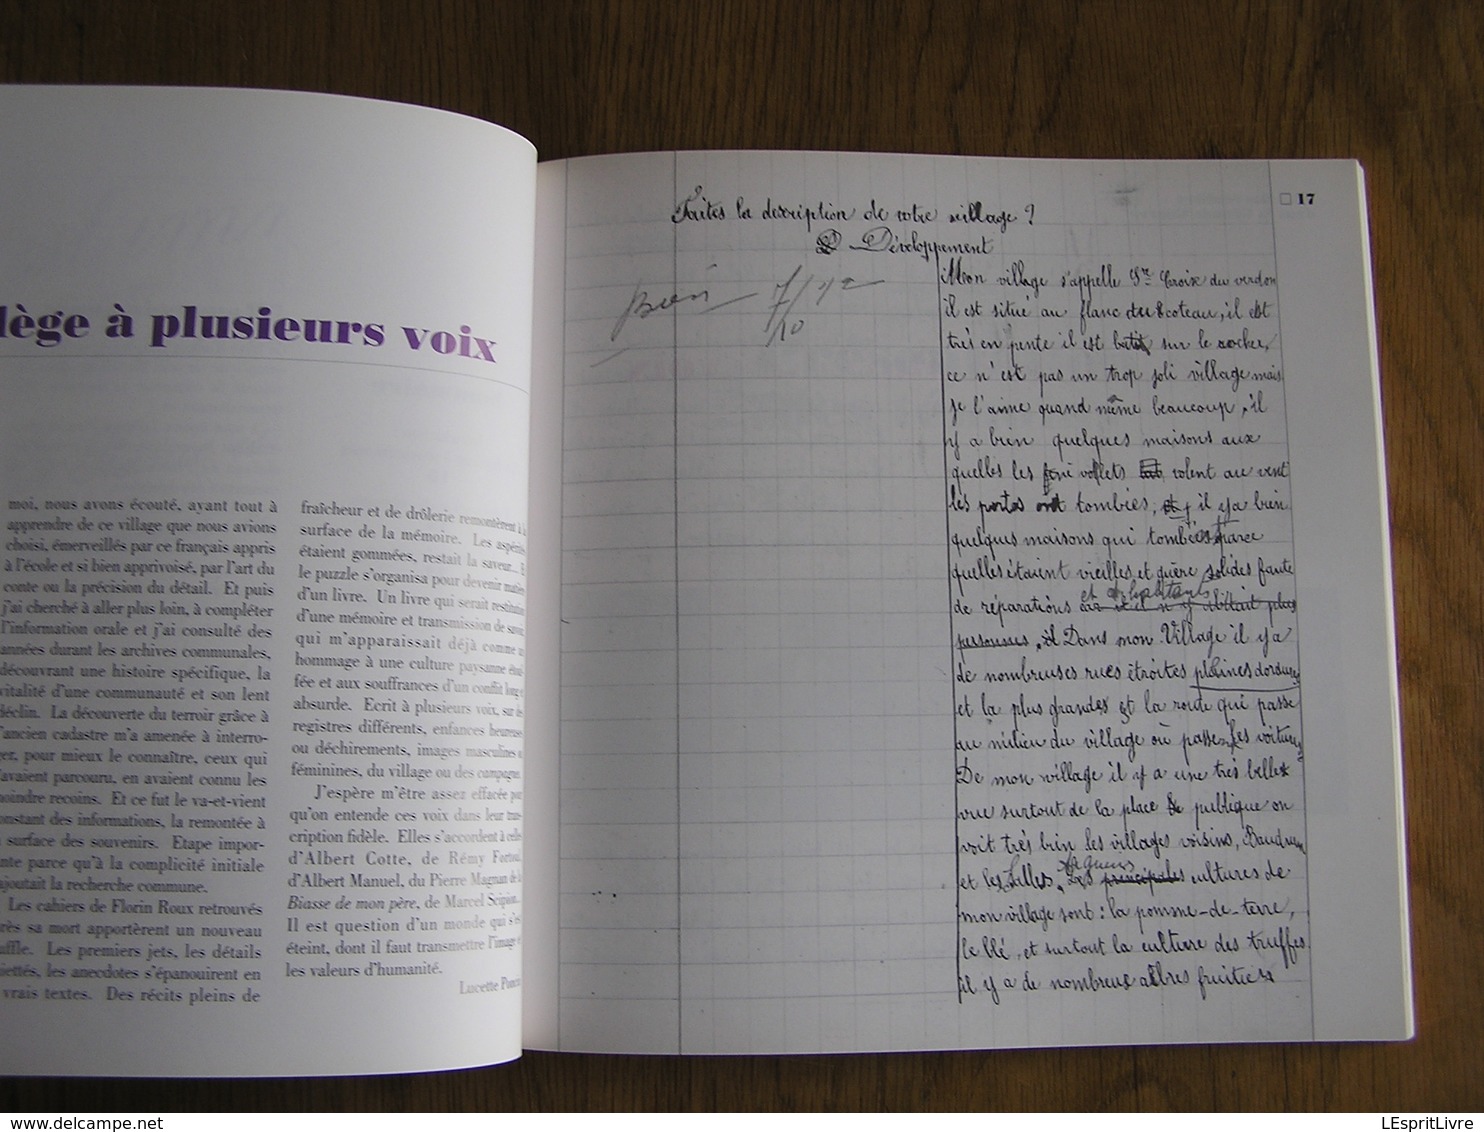 lège à plusieurs voix
moi, nous avons écouté, ayant tout à
apprendre de ce village que nous avions
choisi, émerveillés par ce français appris
à l'école et si bien apprivoisé, par l'art du
conte ou la précision du détail. Et puis
j'ai cherché à aller plus loin, à compléter
l'information orale et j'ai consulté des
années durant les archives communales,
découvrant une histoire spécifique, la
vitalité d'une communauté et son lent
déclin. La découverte du terroir grâce à
l'ancien cadastre m'a amenée à interro-
ger, pour mieux le connaître, ceux qui
l'avaient parcouru, en avaient connu les
moindre recoins. Et ce fut le va-et-vient
constant des informations, la remontée à
surface des souvenirs. Etape impor-
nte parce qu'à la complicité initiale
ajoutait la recherche commune.
Les cahiers de Florin Roux retrouvés
rès sa mort apportèrent un nouveau
uffle. Les premiers jets, les détails
iettés, les anecdotes s'épanouirent en
vrais textes. Des récits pleins de
fraîcheur et de drôlerie remontèrent à la
surface de la mémoire. Les aspérités
étaient gommées, restait la saveur...
le puzzle s'organisa pour devenir matière
d'un livre. Un livre qui serait restitution
d'une mémoire et transmission de savoir
qui m'apparaissait déjà comme un
hommage à une culture paysanne étouf-
fée et aux souffrances d'un conflit long et
absurde. Ecrit à plusieurs voix, sur des
registres différents, enfances heureuses
ou déchirements, images masculines ou
féminines, du village ou des campagnes.
J'espère m'être assez effacée pour
qu'on entende ces voix dans leur trans-
cription fidèle. Elles s'accordent à celles
d'Albert Cotte, de Rémy Fortoul,
d'Albert Manuel, du Pierre Magnan de la
Biasse de mon père, de Marcel Scipion.
Il est question d'un monde qui s'est
éteint, dont il faut transmettre l'image et
les valeurs d'humanité.
Lucette Poncin
17
Faites la description de votre village ?
Développement
Bien 7/10
Mon village s'appelle Ste Croix du verdon
il est situé au flanc du coteau, il est
très en pente il est batit sur le rocher,
ce n'est pas un trop joli village mais
je l'aime quand même beaucoup, il
y a bien quelques maisons aux
quelles les vollets volent au vent
les portes ont tombées, et il y a bien
quelques maisons qui tombées parce
quelles étaient vieilles et guère solides faute
et d'habitants
de réparations car il n'y abitait plus
personnes, il Dans mon Village il y a
de nombreuses rues étroites pleines dordures
et la plus grandes est la route qui passe
au milieu du village où passe les voitures
De mon village il y a une très belle
vue surtout de la place publique on
voit très bien les villages voisins, Baudinard
et les Salles. Les principales cultures de
mon village sont : la pomme-de-terre,
le blé, et surtout la culture des truffes
il y a de nombreux albres fruitiers
delcampe.net
LEspritLivre